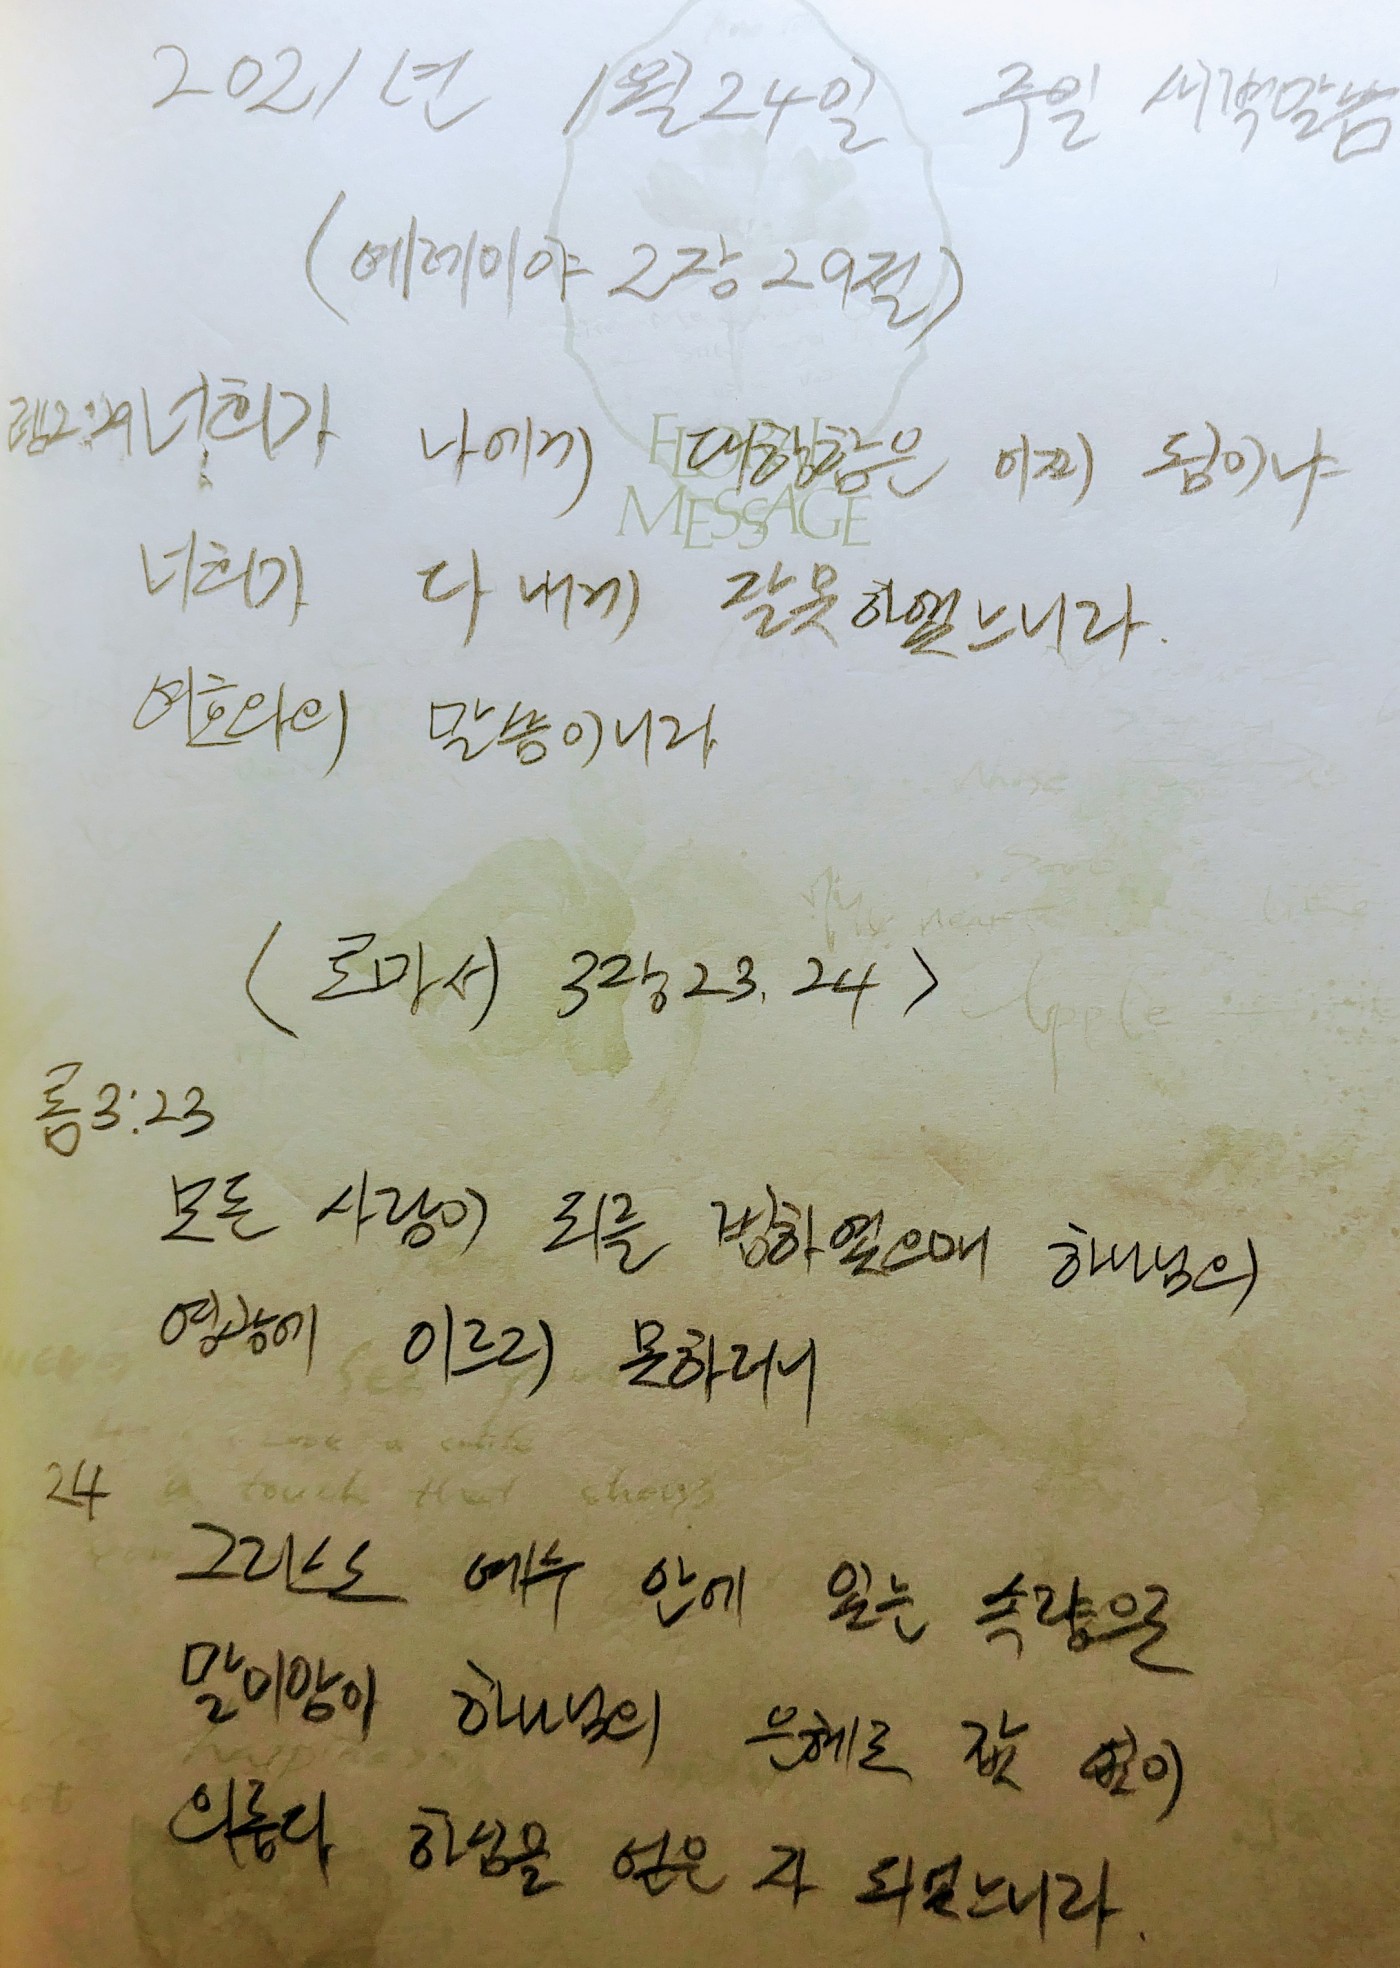 2021년 1월24일 주일 새벽말씀
(예레미야 2장 29절)
렘2:29 너희가 나에게 대항함은 어찌 됨이냐
너희가 다 내게 잘못하였느니라.
여호와의 말씀이니라
FLORAL
MESSAGE
(로마서 3장 23. 24)
롬3:23
모든 사람이 죄를 범하였으매 하나님의
영광에 이르지 못하더니
24
a touch that shows
Apple
그리스도 예수 안에 있는 속량으로
말미암아 하나님의 은혜로 값 없이
의롭다 하심을 얻은 자 되었느니라.